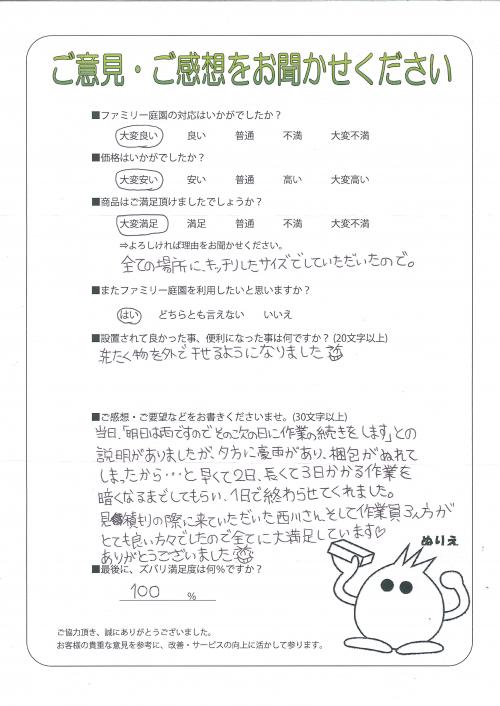 ご意見・ご感想をお聞かせください
■ファミリー庭園の対応はいかがでしたか？
大変良い 良い 普通 不満 大変不満
■価格はいかがでしたか？
大変安い 安い 普通 高い 大変高い
■商品はご満足頂けましたでしょうか？
大変満足 満足 普通 不満 大変不満
⇒よろしければ理由をお聞かせください。
全ての場所に、キッチリしたサイズでしていただいたので。
■またファミリー庭園を利用したいと思いますか？
はい どちらとも言えない いいえ
■設置されて良かった事、便利になった事は何ですか？(20文字以上)
洗たく物を外で干せるようになりました
■ご感想・ご要望などをお書きくださいませ。(30文字以上)
当日、「明日は雨ですのでその次の日に作業の続きをします」との
説明がありましたが、夕方に豪雨があり、梱包がぬれて
しまったから…と早くて2日、長くて3日かかる作業を
暗くなるまでしてもらい、1日で終わらせてくれました。
見積もりの際に来ていただいた西川さん、そして作業員3人方が
とても良い方々でしたので全てに大満足しています♡
ありがとうございました
ぬりえ
■最後に、ズバリ満足度は何％ですか？
100 ％
ご協力頂き、誠にありがとうございました。
お客様の貴重な意見を参考に、改善・サービスの向上に活かして参ります。